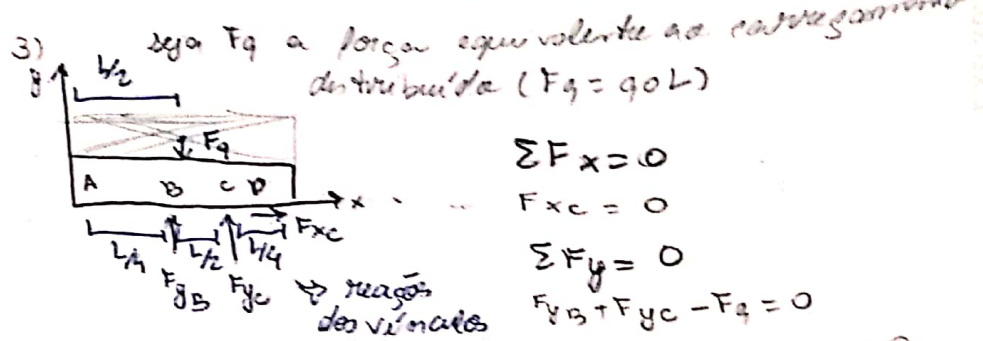 3) seja Fq a força equivalente ao carregamento
distribuída (Fq = q0L)
y
L/2
Fq
A B C D
x
Fxc
L/4 L/2 L/4
FyB Fyc → reações
dos vínculos
ΣFx = 0
Fxc = 0
ΣFy = 0
FyB + Fyc - Fq = 0